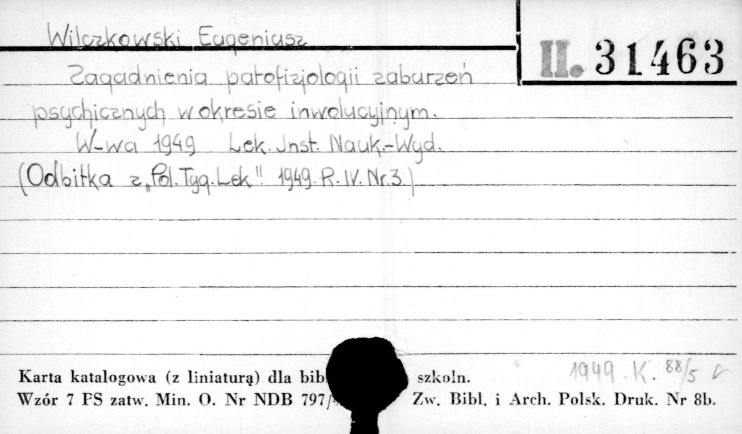 Wilczkowski Eugeniusz
II. 31463
Zagadnienia patofizjologii zaburzeń
psychicznych w okresie inwolucyjnym.
W-wa 1949 Lek. Inst. Nauk.-Wyd.
(Odbitka z „Pol. Tyg. Lek". 1949. R. IV. Nr. 3.)
1949. K. 88/5
Karta katalogowa (z liniaturą) dla bib szkoln.
Wzór 7 PS zatw. Min. O. Nr NDB 797/ Zw. Bibl. i Arch. Polsk. Druk. Nr 8b.